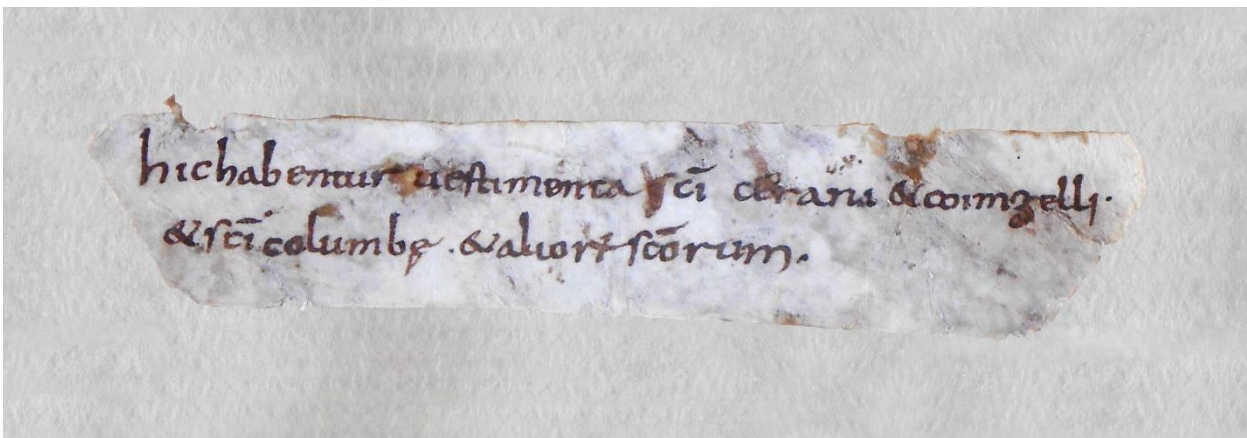 hic habentur uestimenta sc̄i cerani & comgelli.
& sc̄i columbę . & alior̄ sc̄orum.